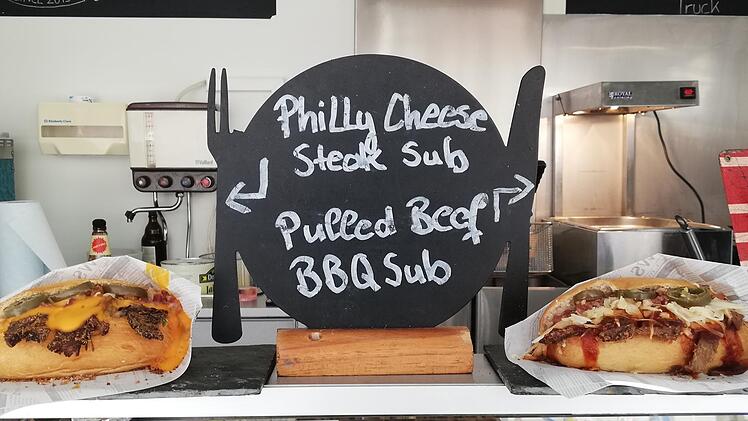 SINCE 2015
Truck
Philly Cheese
Steak Sub
Pulled Beef
BBQ Sub
Kimberly-Clark
Vaillant
ROYAL